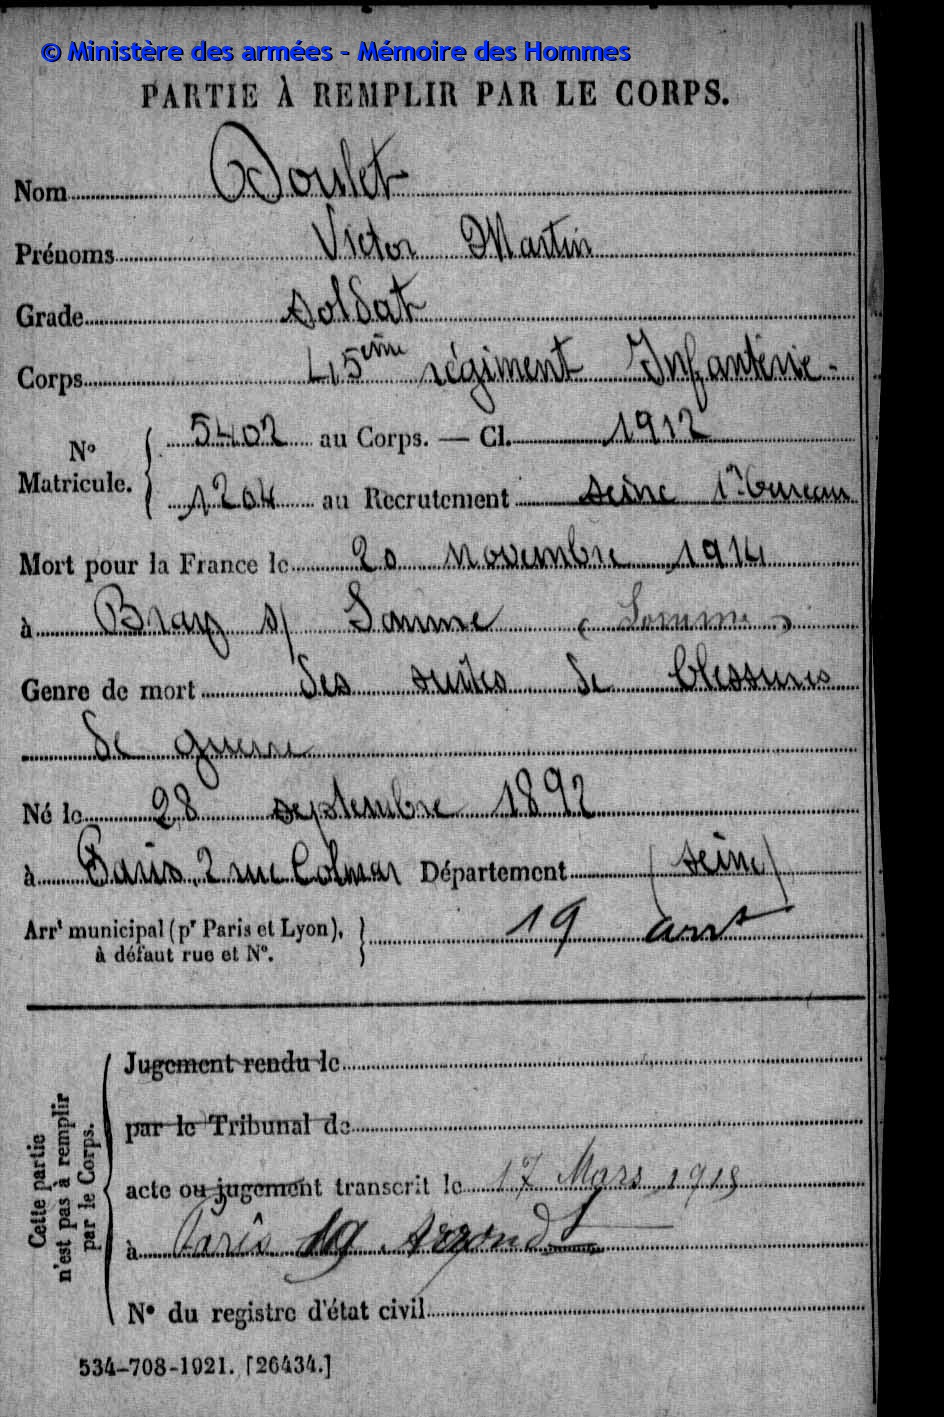 © Ministère des armées - Mémoire des Hommes
PARTIE À REMPLIR PAR LE CORPS.
Nom Doulet
Prénoms Victor Martin
Grade soldat
Corps 45ème régiment Infanterie
N° Matricule. { 5402 au Corps. — Cl. 1912
1204 au Recrutement seine 1r bureau
Mort pour la France le 20 novembre 1914
à Bray s/ Somme (Somme)
Genre de mort des suites de blessures
de guerre
Né le 28 septembre 1892
à Paris, 2 rue Colmar Département (seine)
Arrt municipal (pr Paris et Lyon), à défaut rue et N°. } 19 arrt
Cette partie n'est pas à remplir par le Corps.
Jugement rendu le
par le Tribunal de
acte ou jugement transcrit le 17 Mars 1915
à Paris 19 Arrondt
N° du registre d'état civil
534-708-1921. [26434.]